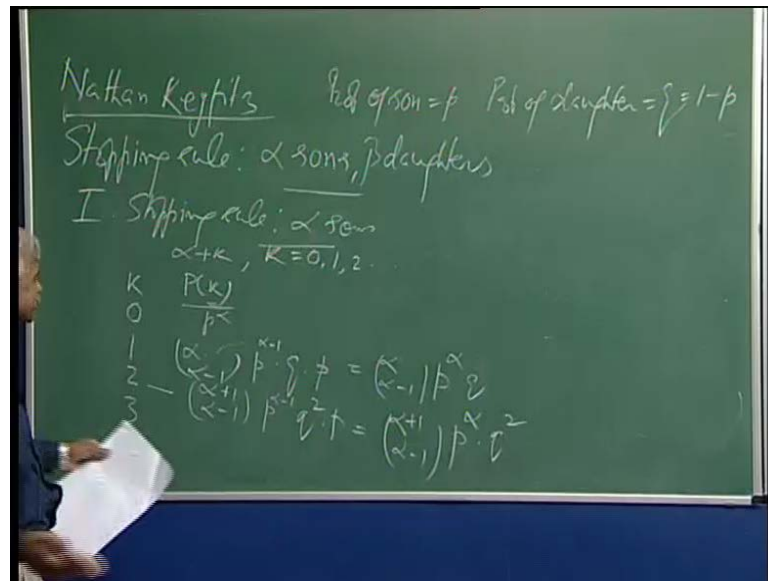 Nathan Keyfitz Prob of son = p Prob of daughter = q = 1-p
Stopping rule: α sons, β daughters
I. Stopping rule: α sons
α+k, K=0,1,2...
K P(K)
0 p^α
1 (α α-1) p^(α-1) . q . p = (α α-1) p^α q
2 — (α+1 α-1) p^(α-1) q^2 . p = (α+1 α-1) p^α . q^2
3